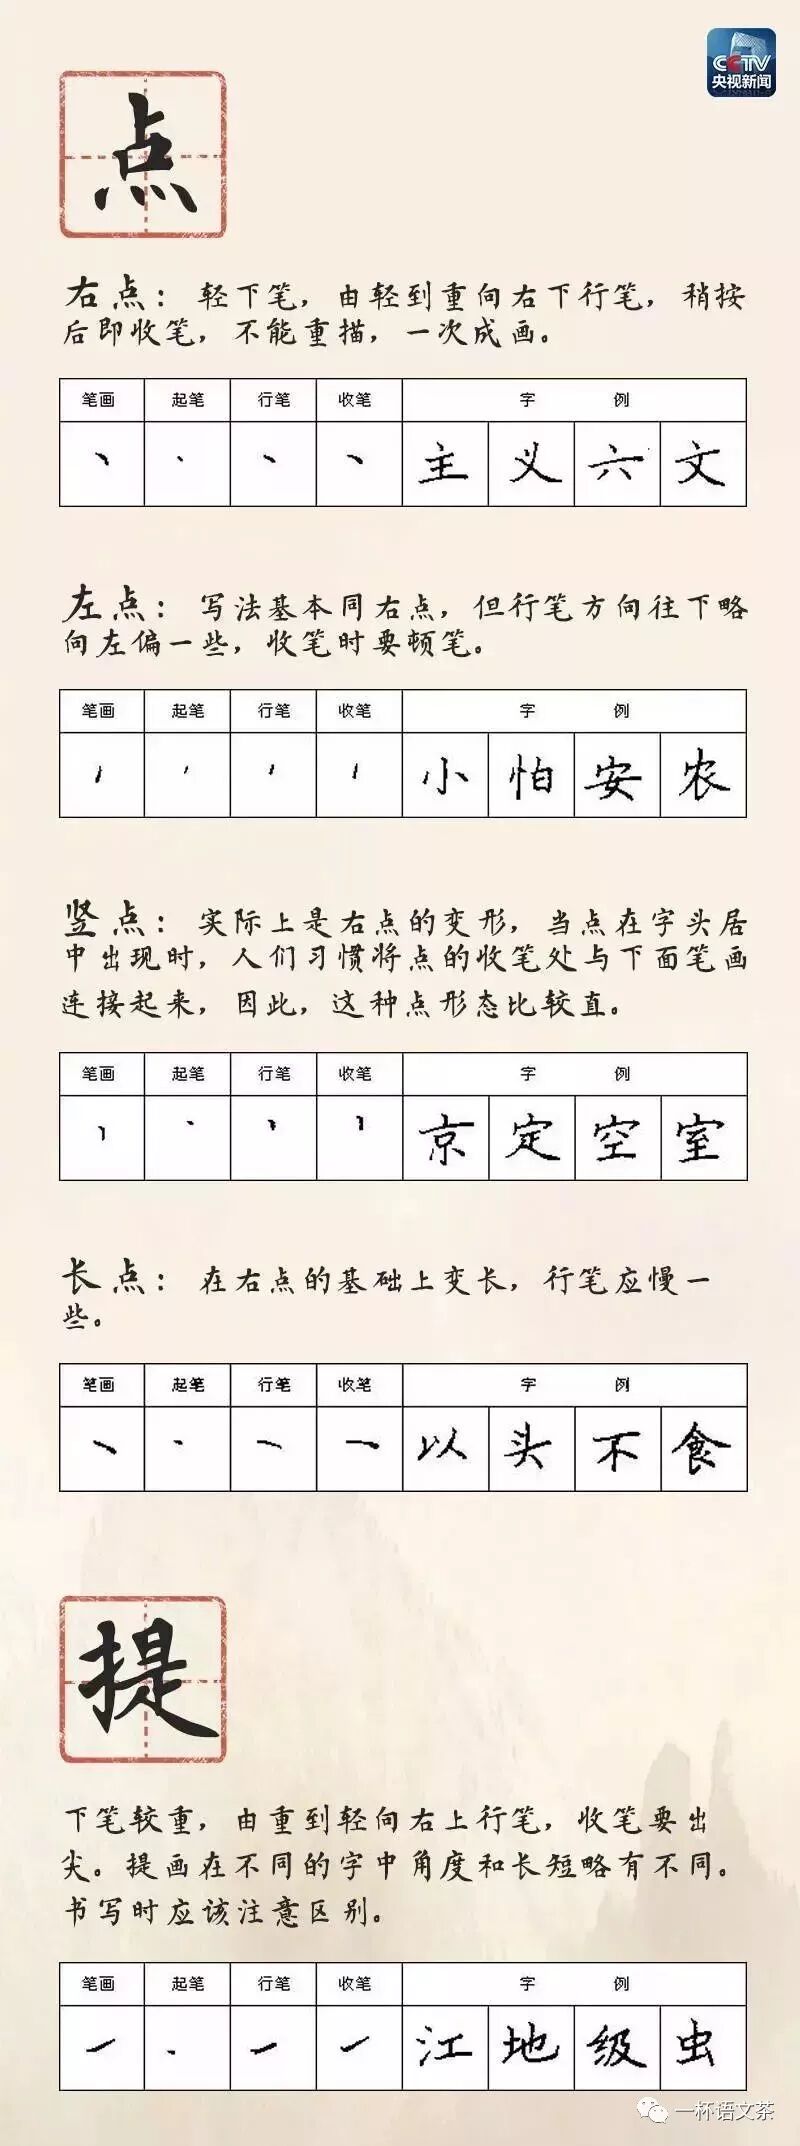 CCTV
央视新闻
点
右点：轻下笔，由轻到重向右下行笔，稍按
后即收笔，不能重描，一次成画。
笔画 起笔 行笔 收笔 字例
丶 主 义 六 文
左点：写法基本同右点，但行笔方向往下略
向左偏一些，收笔时要顿笔。
笔画 起笔 行笔 收笔 字例
小 怕 安 农
竖点：实际上是右点的变形，当点在字头居
中出现时，人们习惯将点的收笔处与下面笔画
连接起来，因此，这种点形态比较直。
笔画 起笔 行笔 收笔 字例
京 定 空 室
长点：在右点的基础上变长，行笔应慢一
些。
笔画 起笔 行笔 收笔 字例
以 头 不 食
提
下笔较重，由重到轻向右上行笔，收笔要出
尖。提画在不同的字中角度和长短略有不同。
书写时应该注意区别。
笔画 起笔 行笔 收笔 字例
江 地 级 虫
一杯语文茶